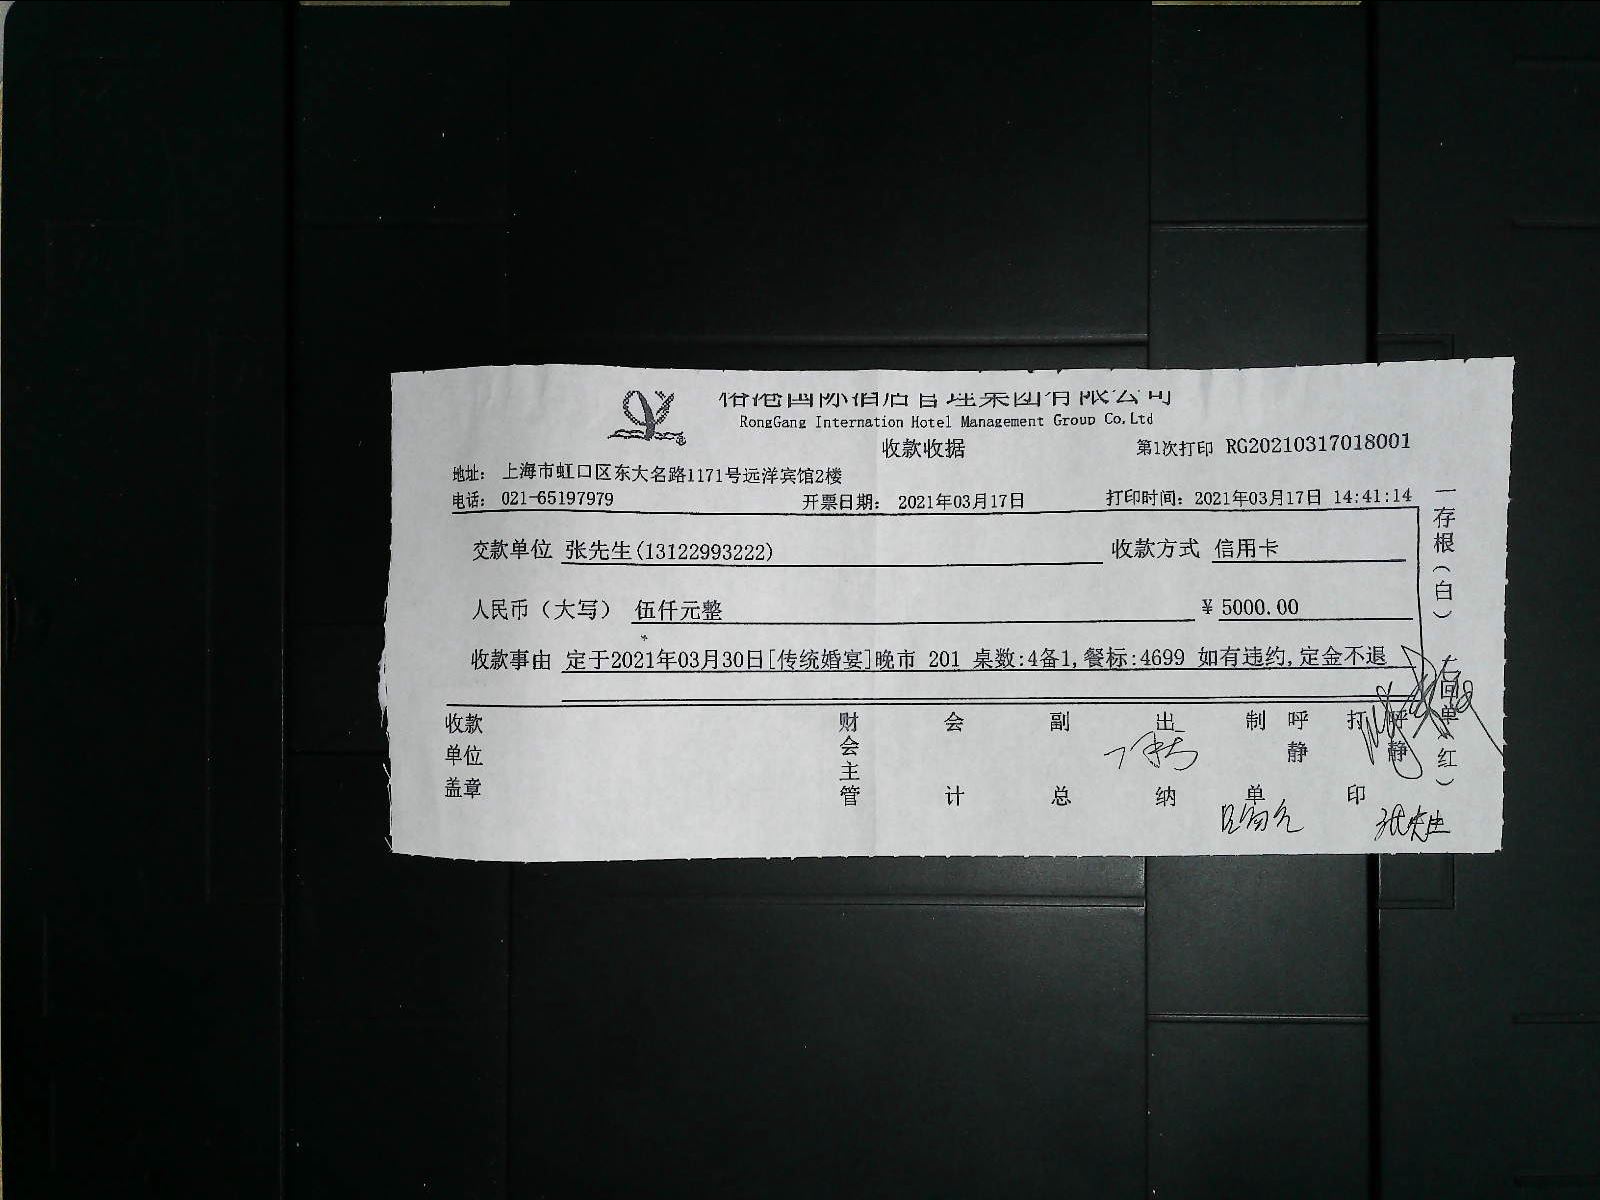 榕港国际酒店管理集团有限公司
RongGang Internation Hotel Management Group Co,Ltd
收款收据
第1次打印 RG20210317018001
地址: 上海市虹口区东大名路1171号远洋宾馆2楼
电话: 021-65197979 开票日期: 2021年03月17日 打印时间: 2021年03月17日 14:41:14
交款单位 张先生(13122993222) 收款方式 信用卡
人民币（大写） 伍仟元整 ¥ 5000.00
收款事由 定于2021年03月30日[传统婚宴]晚市 201 桌数:4备1,餐标:4699 如有违约,定金不退
收款单位盖章 财会主管 会计 副总 出纳 制单 呼静 打印 呼静
张先生
一存根(白)
单(红)